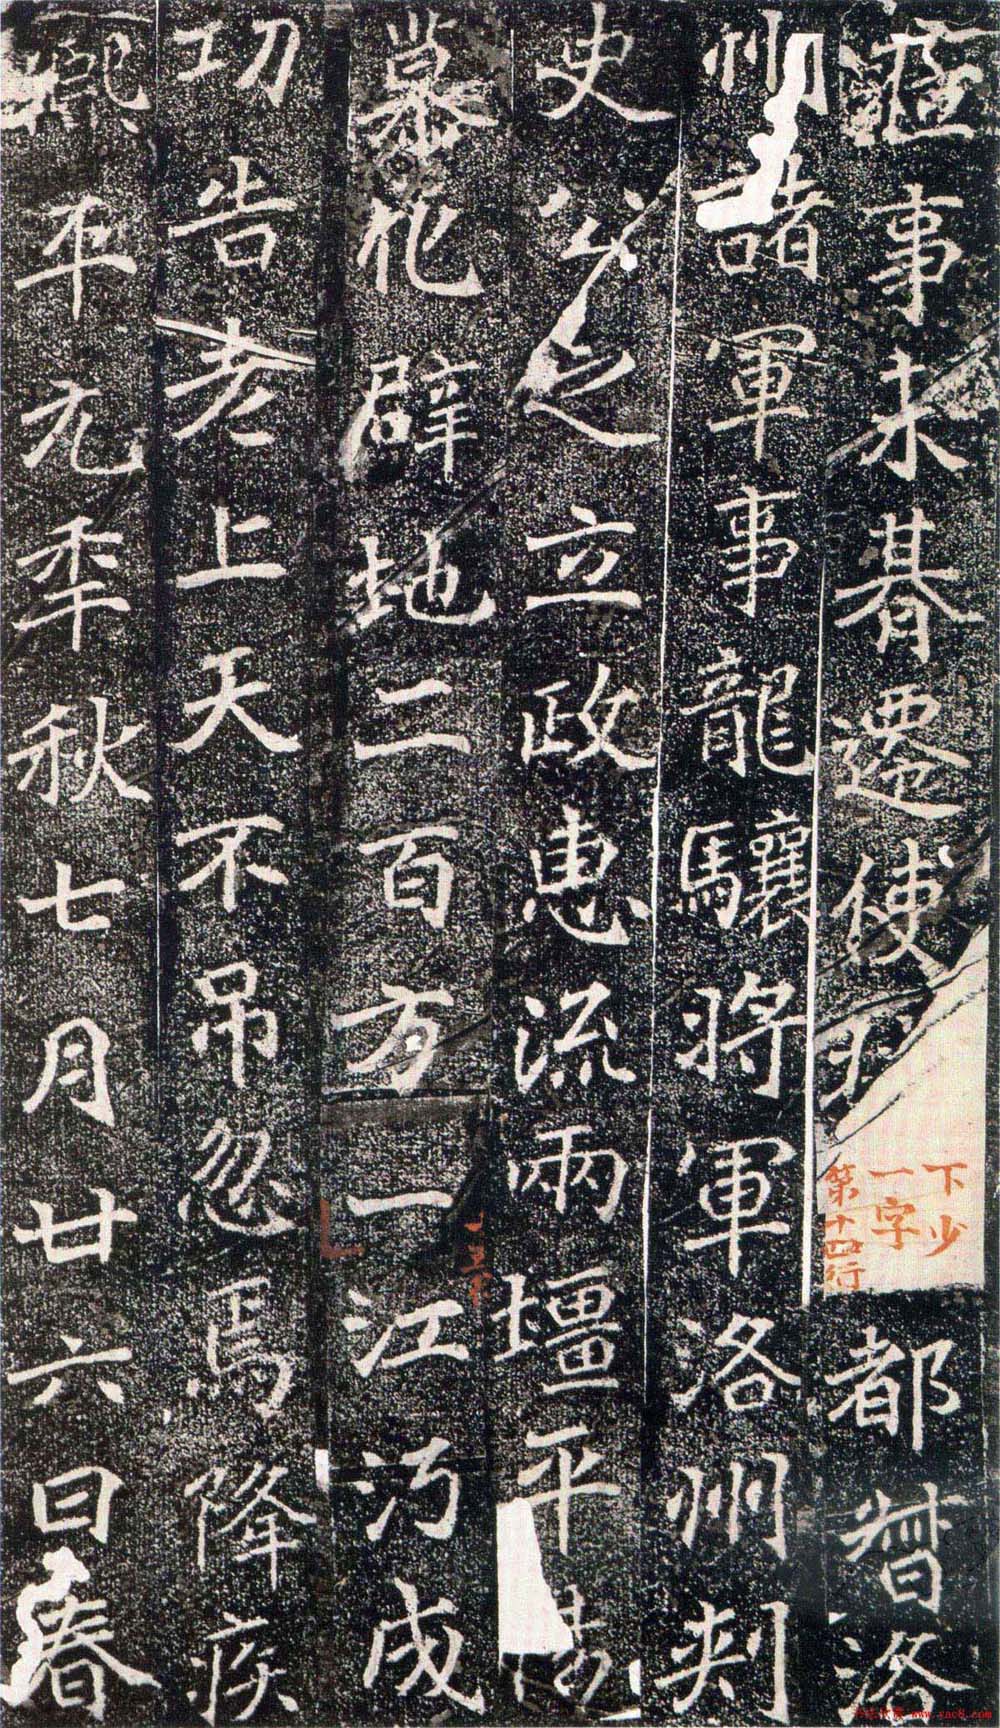 事未朞遷使持
都督洛
州諸軍事龍驤將軍洛州刺
史公之立政惠流兩壃平陽
慕化辟地二百方一江沔成
功告老上天不弔忽焉降疾
熙平元年秋七月廿六日春
下少
一字
第十四行
www.yac8.com